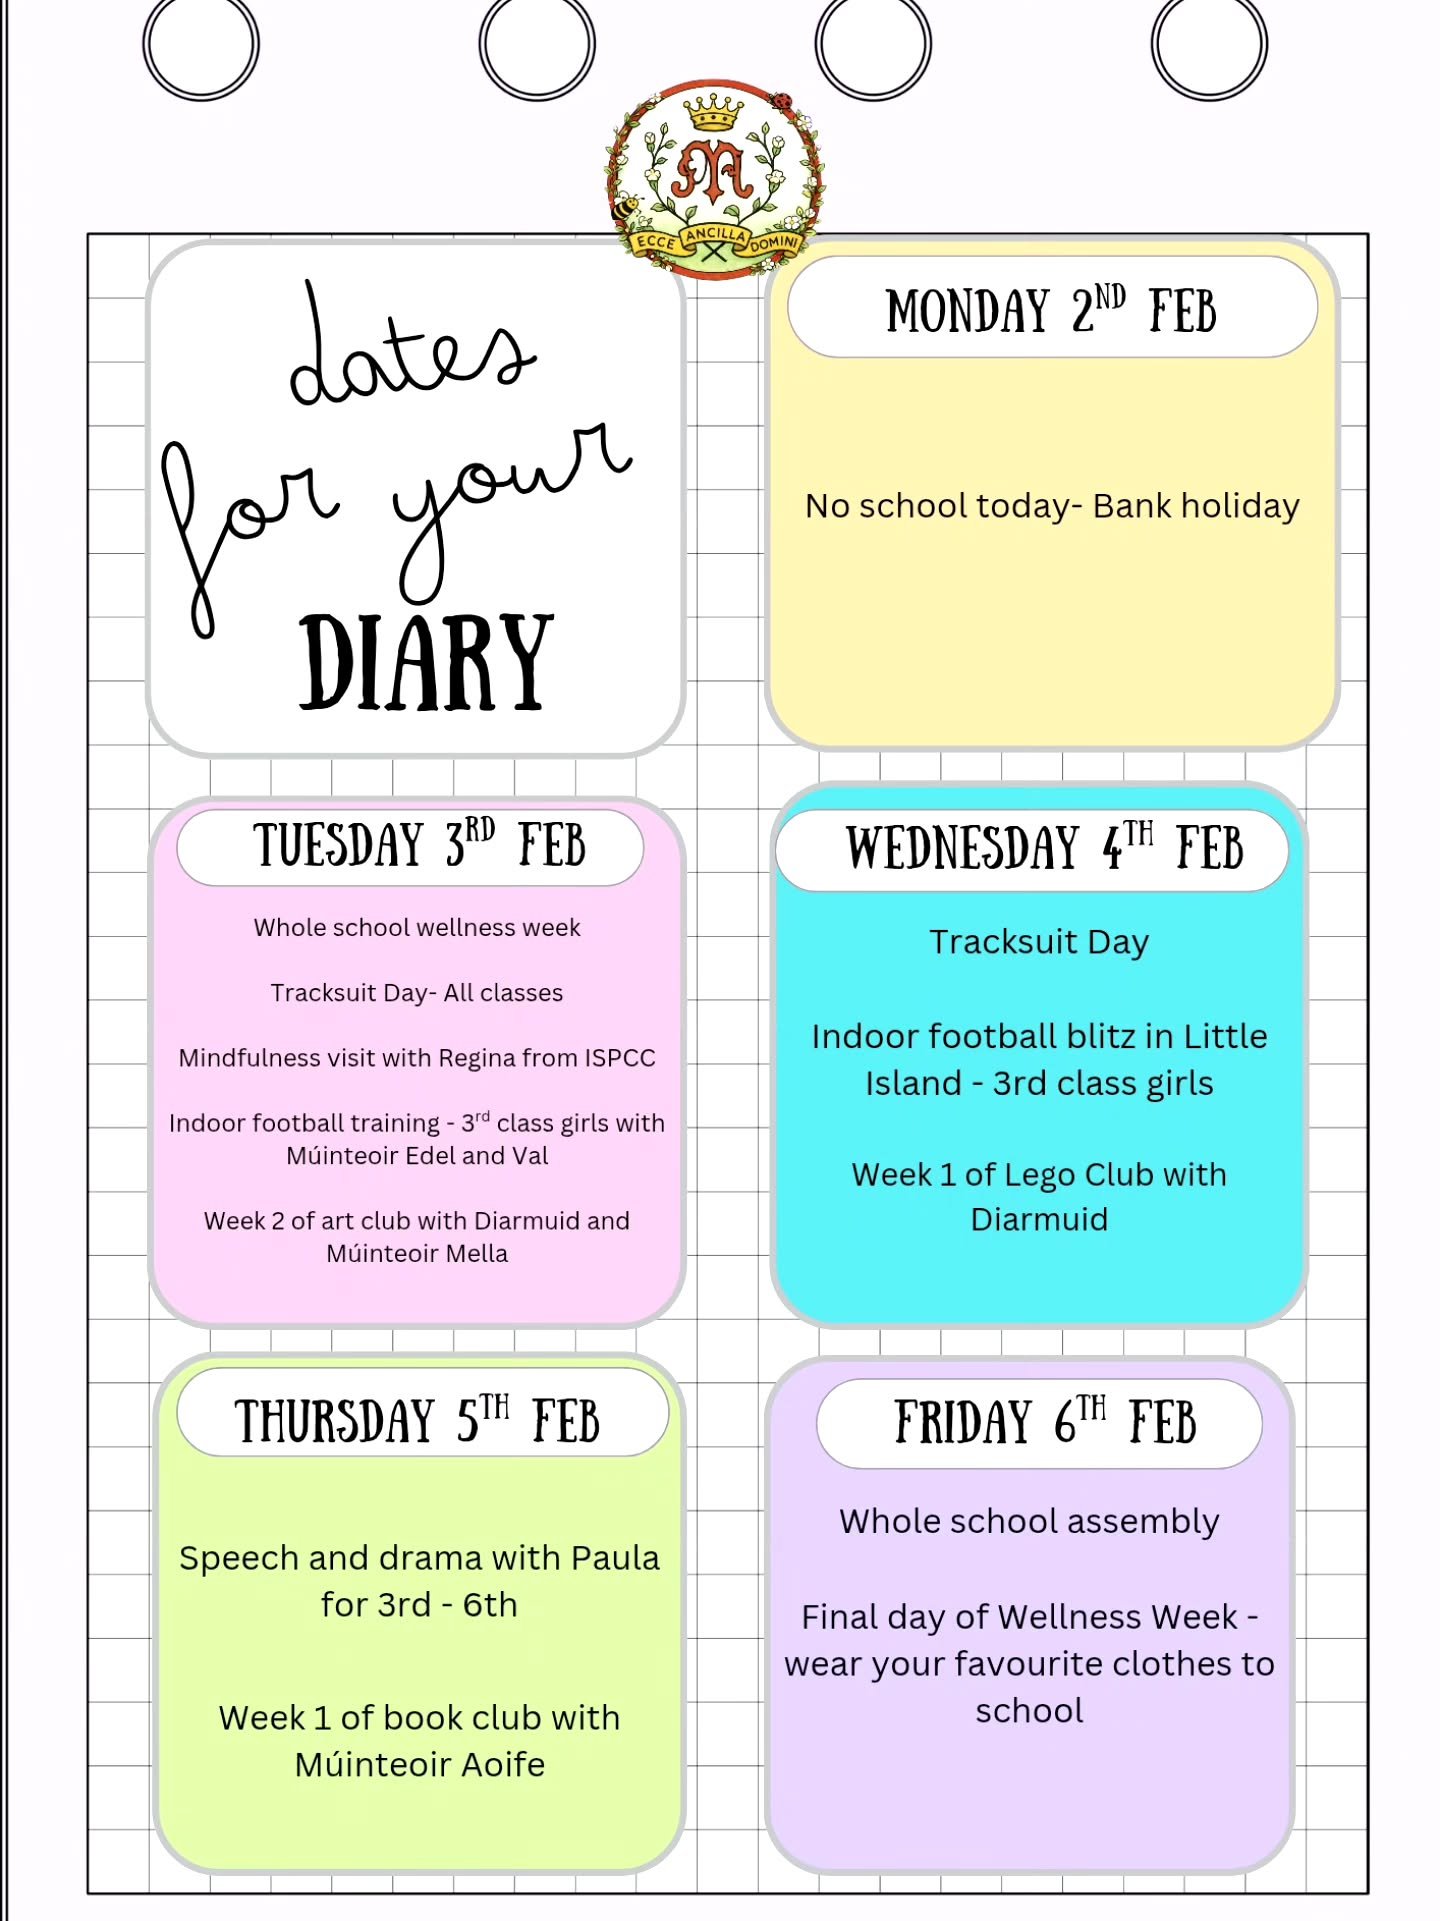 ECCE ANCILLA DOMINI
dates
for your
DIARY
MONDAY 2ND FEB
No school today- Bank holiday
TUESDAY 3RD FEB
Whole school wellness week
Tracksuit Day- All classes
Mindfulness visit with Regina from ISPCC
Indoor football training - 3rd class girls with
Múinteoir Edel and Val
Week 2 of art club with Diarmuid and
Múinteoir Mella
WEDNESDAY 4TH FEB
Tracksuit Day
Indoor football blitz in Little
Island - 3rd class girls
Week 1 of Lego Club with
Diarmuid
THURSDAY 5TH FEB
Speech and drama with Paula
for 3rd - 6th
Week 1 of book club with
Múinteoir Aoife
FRIDAY 6TH FEB
Whole school assembly
Final day of Wellness Week -
wear your favourite clothes to
school